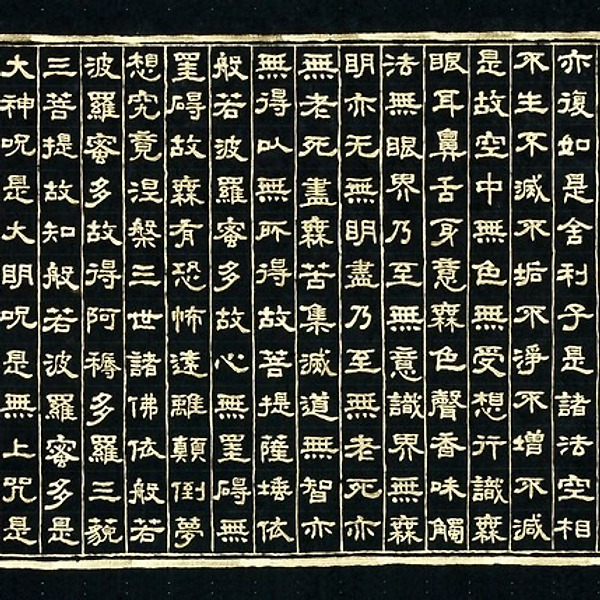 亦復如是舍利子是諸法空相
不生不滅不垢不淨不增不減
是故空中無色無受想行識無
眼耳鼻舌身意無色聲香味觸
法無眼界乃至無意識界無無
明亦无無明盡乃至無老死亦
無老死盡無苦集滅道無智亦
無得以無所得故菩提薩埵依
般若波羅蜜多故心無罣碍無
罣碍故無有恐怖遠離顛倒夢
想究竟涅槃三世諸佛依般若
波羅蜜多故得阿耨多羅三藐
三菩提故知般若波羅蜜多是
大神呪是大明呪是無上咒是